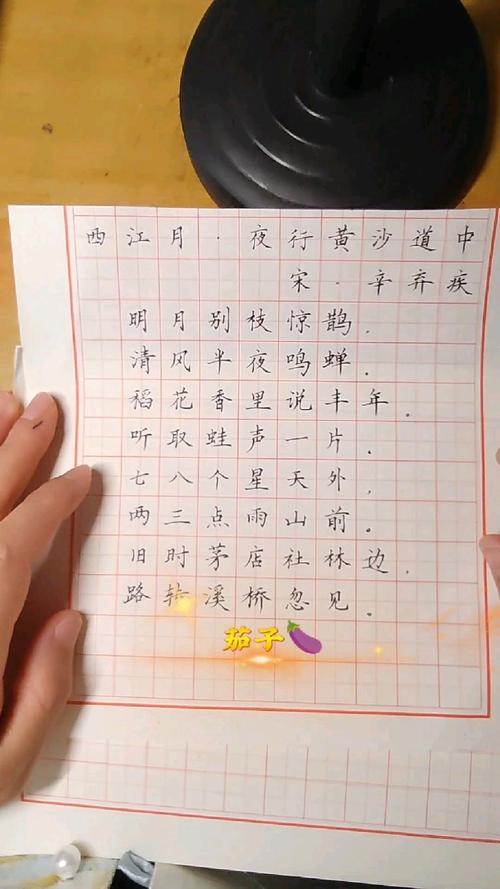 西江月·夜行黄沙道中
宋·辛弃疾
明月别枝惊鹊，
清风半夜鸣蝉。
稻花香里说丰年。
听取蛙声一片。
七八个星天外，
两三点雨山前。
旧时茅店社林边，
路转溪桥忽见。
茄子🍆